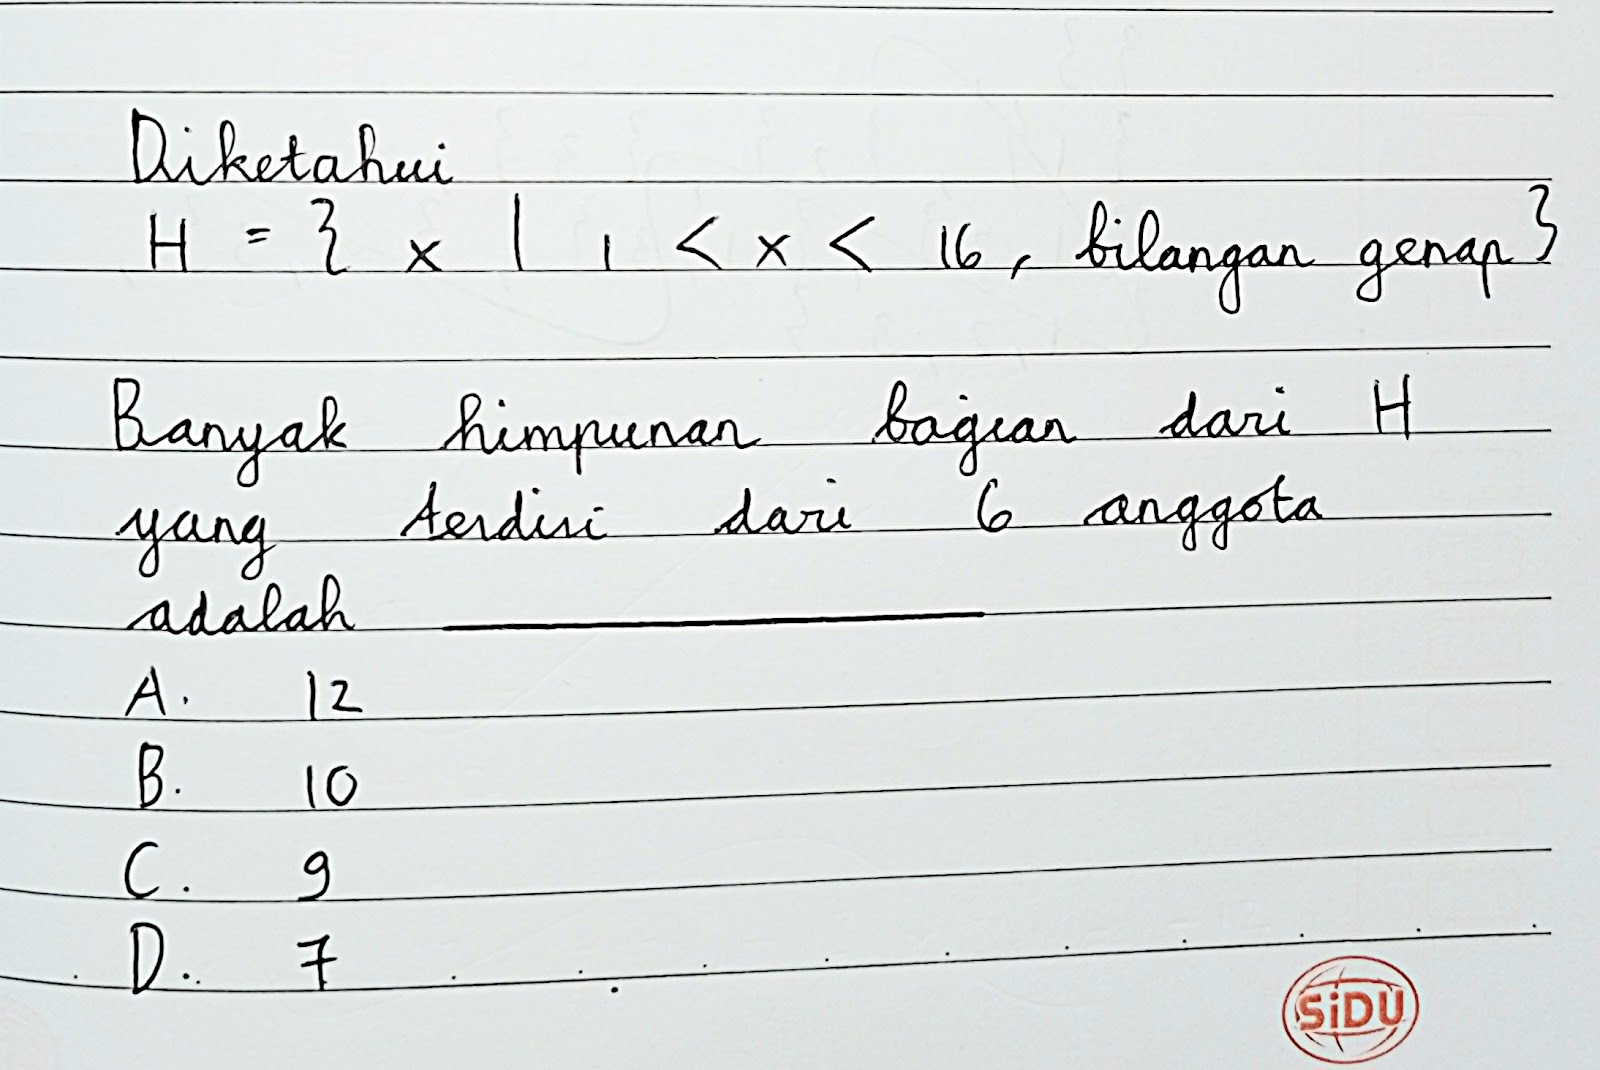 Diketahui
H = { x | 1 < x < 16, bilangan genap }
Banyak himpunan bagian dari H
yang terdiri dari 6 anggota
adalah ________
A. 12
B. 10
C. 9
D. 7
SiDU